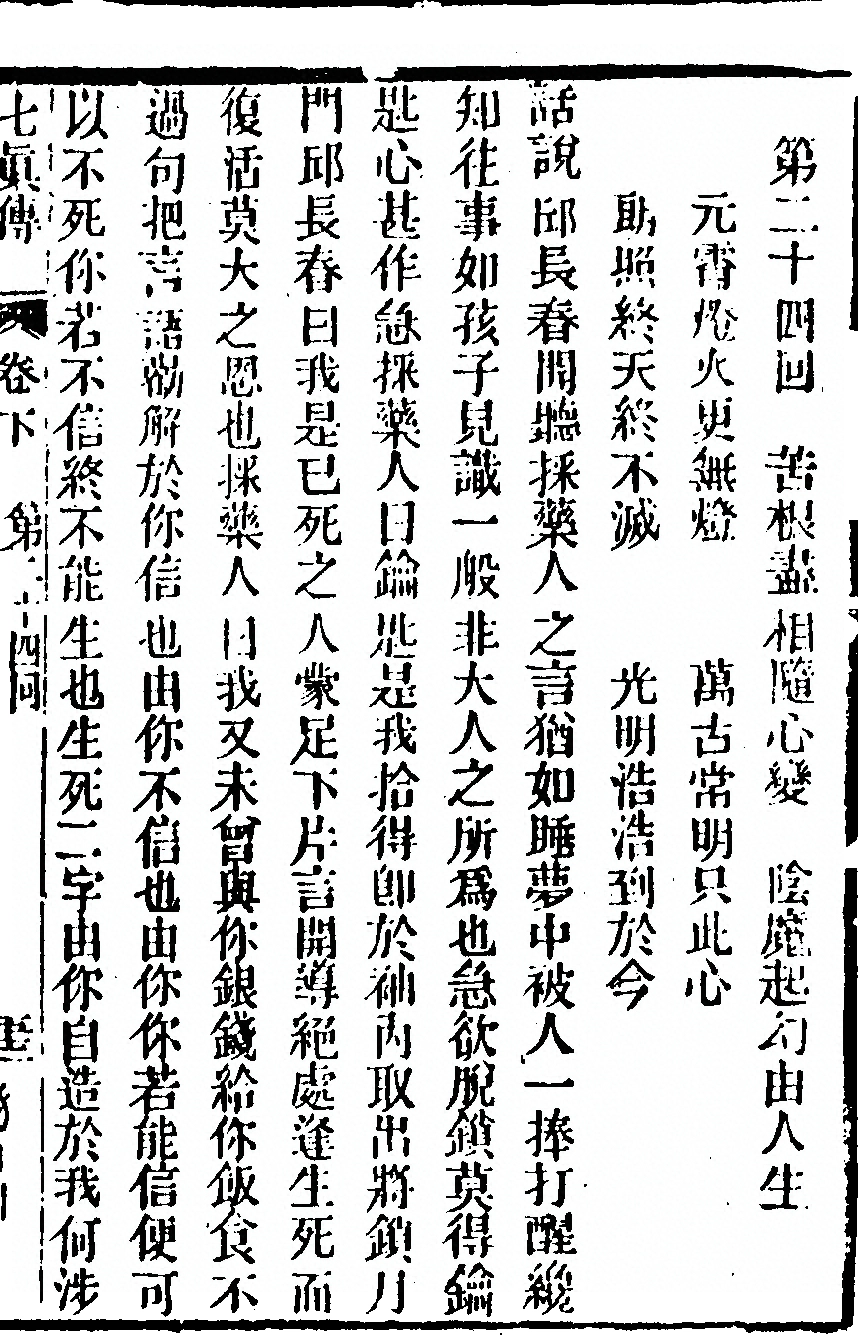 第二十四回　苦根盡相隨心變　陰魔起幻由人生
元霄燈火更無燈　萬古常明只此心
貼照終天終不滅　光明浩浩到於今
話說邱長春聞聽採藥人之言猶如睡夢中被人一捧打醒纔
知往事如孩子見識一般非大人之所爲也急欲脫鎖莫得鑰
匙心甚作急採藥人曰鑰匙是我拾得卽於袖內取出將鎖刀
門邱長春曰我是已死之人蒙足下片言開導絕處逢生死而
復活莫大之恩也採藥人曰我又未曾與你銀錢給你飯食不
過句把言語勸解於你信也由你不信也由你你若能信便可
以不死你若不信終不能生也生死二字由你自造於我何涉
七眞傳　卷下　第二十四回